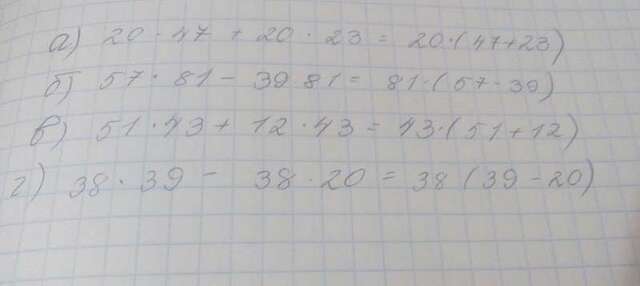 а) 20 · 47 + 20 · 23 = 20·(47+23)
б) 57 · 81 - 39 81 = 81·(57-39)
в) 51 · 43 + 12 · 43 = 43·(51+12)
г) 38 · 39 - 38 · 20 = 38 (39-20)